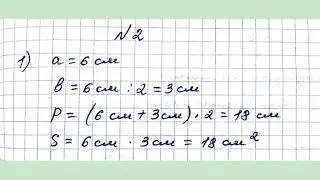 №2
1) a = 6 см
b = 6 см : 2 = 3 см
P = (6 см + 3 см) · 2 = 18 см
S = 6 см · 3 см = 18 см²